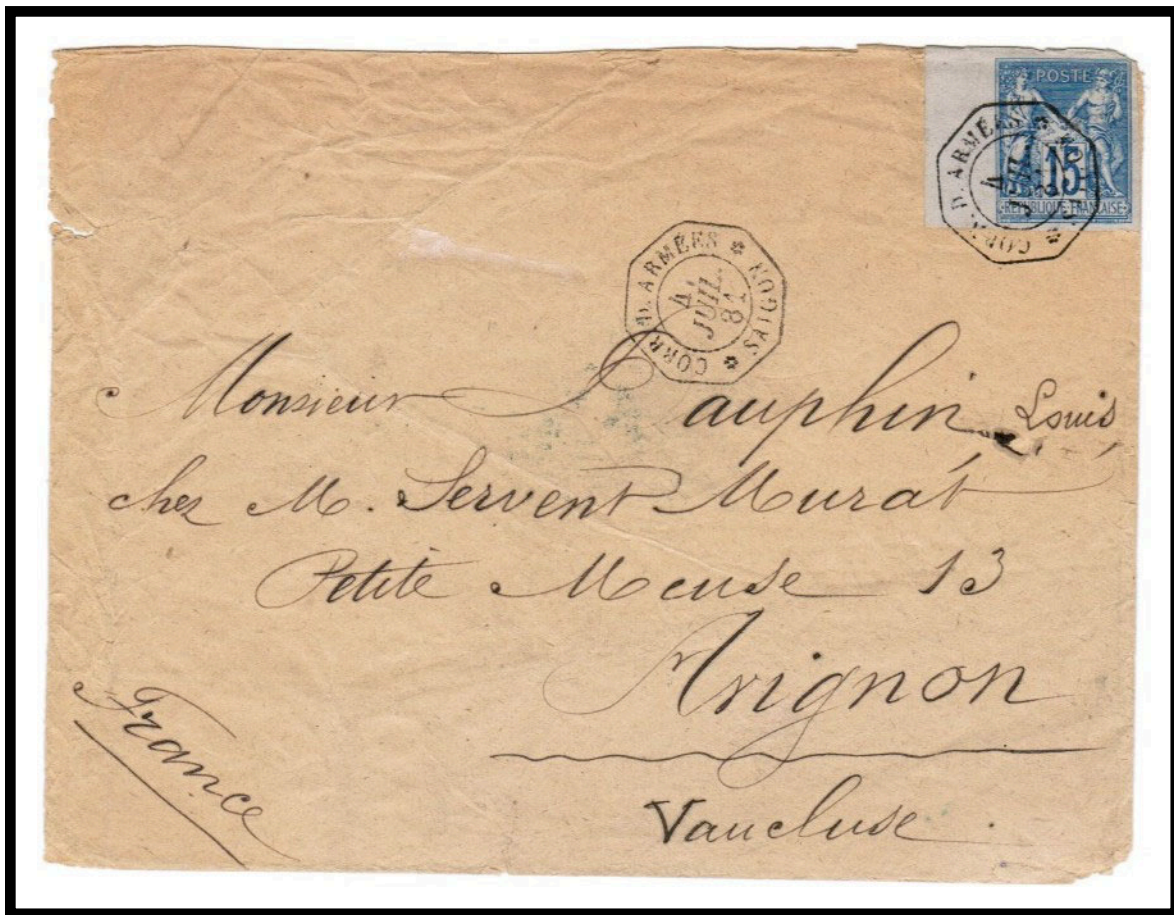 POSTE
15
REPUBLIQUE FRANÇAISE
CORR. D. ARMÉES
CORR. D. ARMÉES * SAIGON *
JUIL.
81
Monsieur Dauphin Louis
chez M. Servent Murat
Petite Meuse 13
Avignon
Vaucluse
France